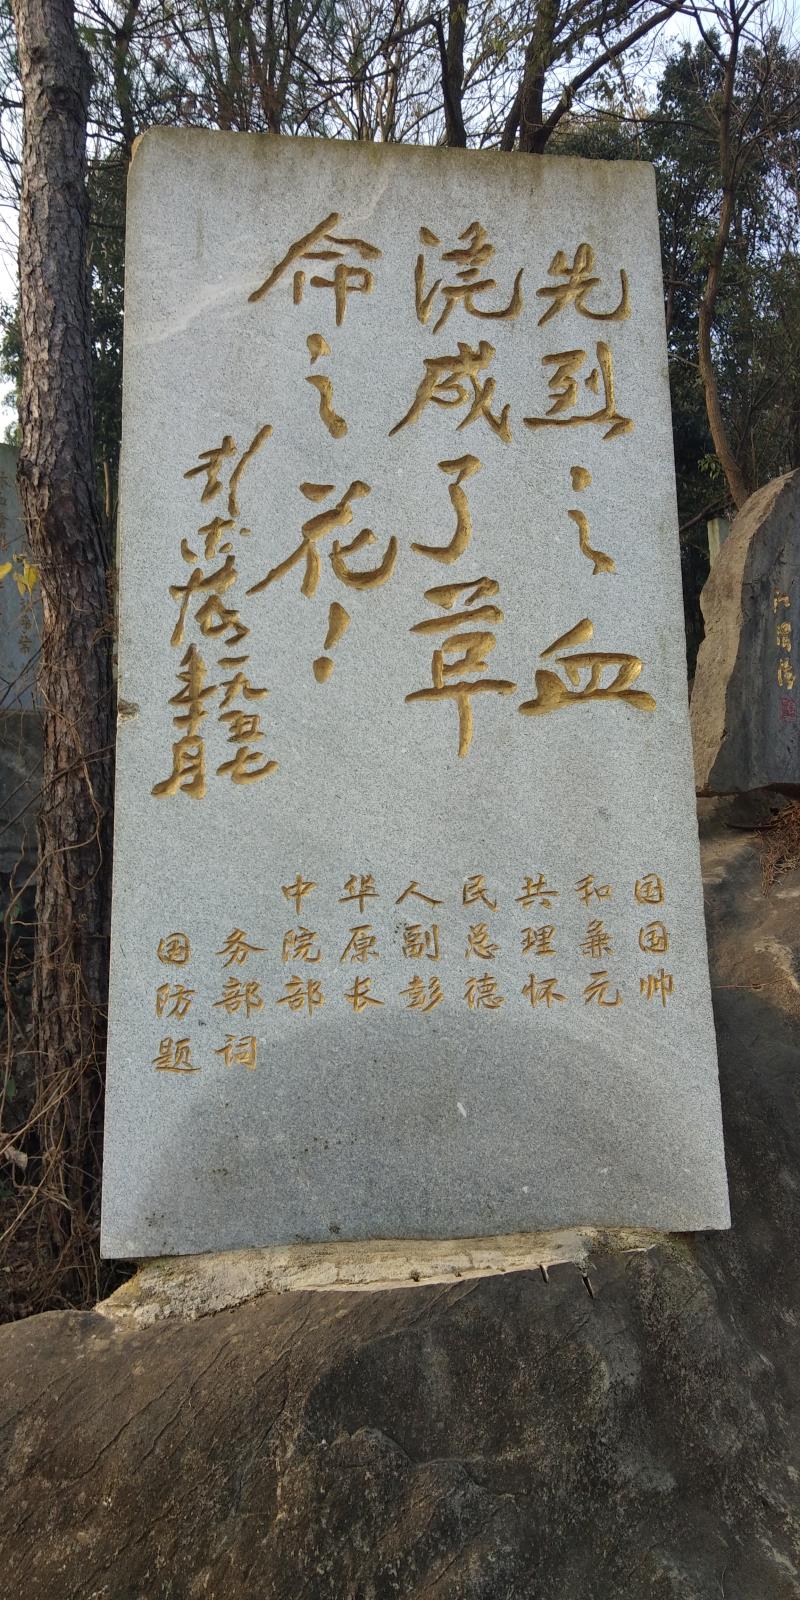 先烈之血
浇成了革
命之花！
彭德怀
一九五七
年十月
中华人民共和国
国务院原副总理兼国
防部部长彭德怀元帅
题词
江渭清